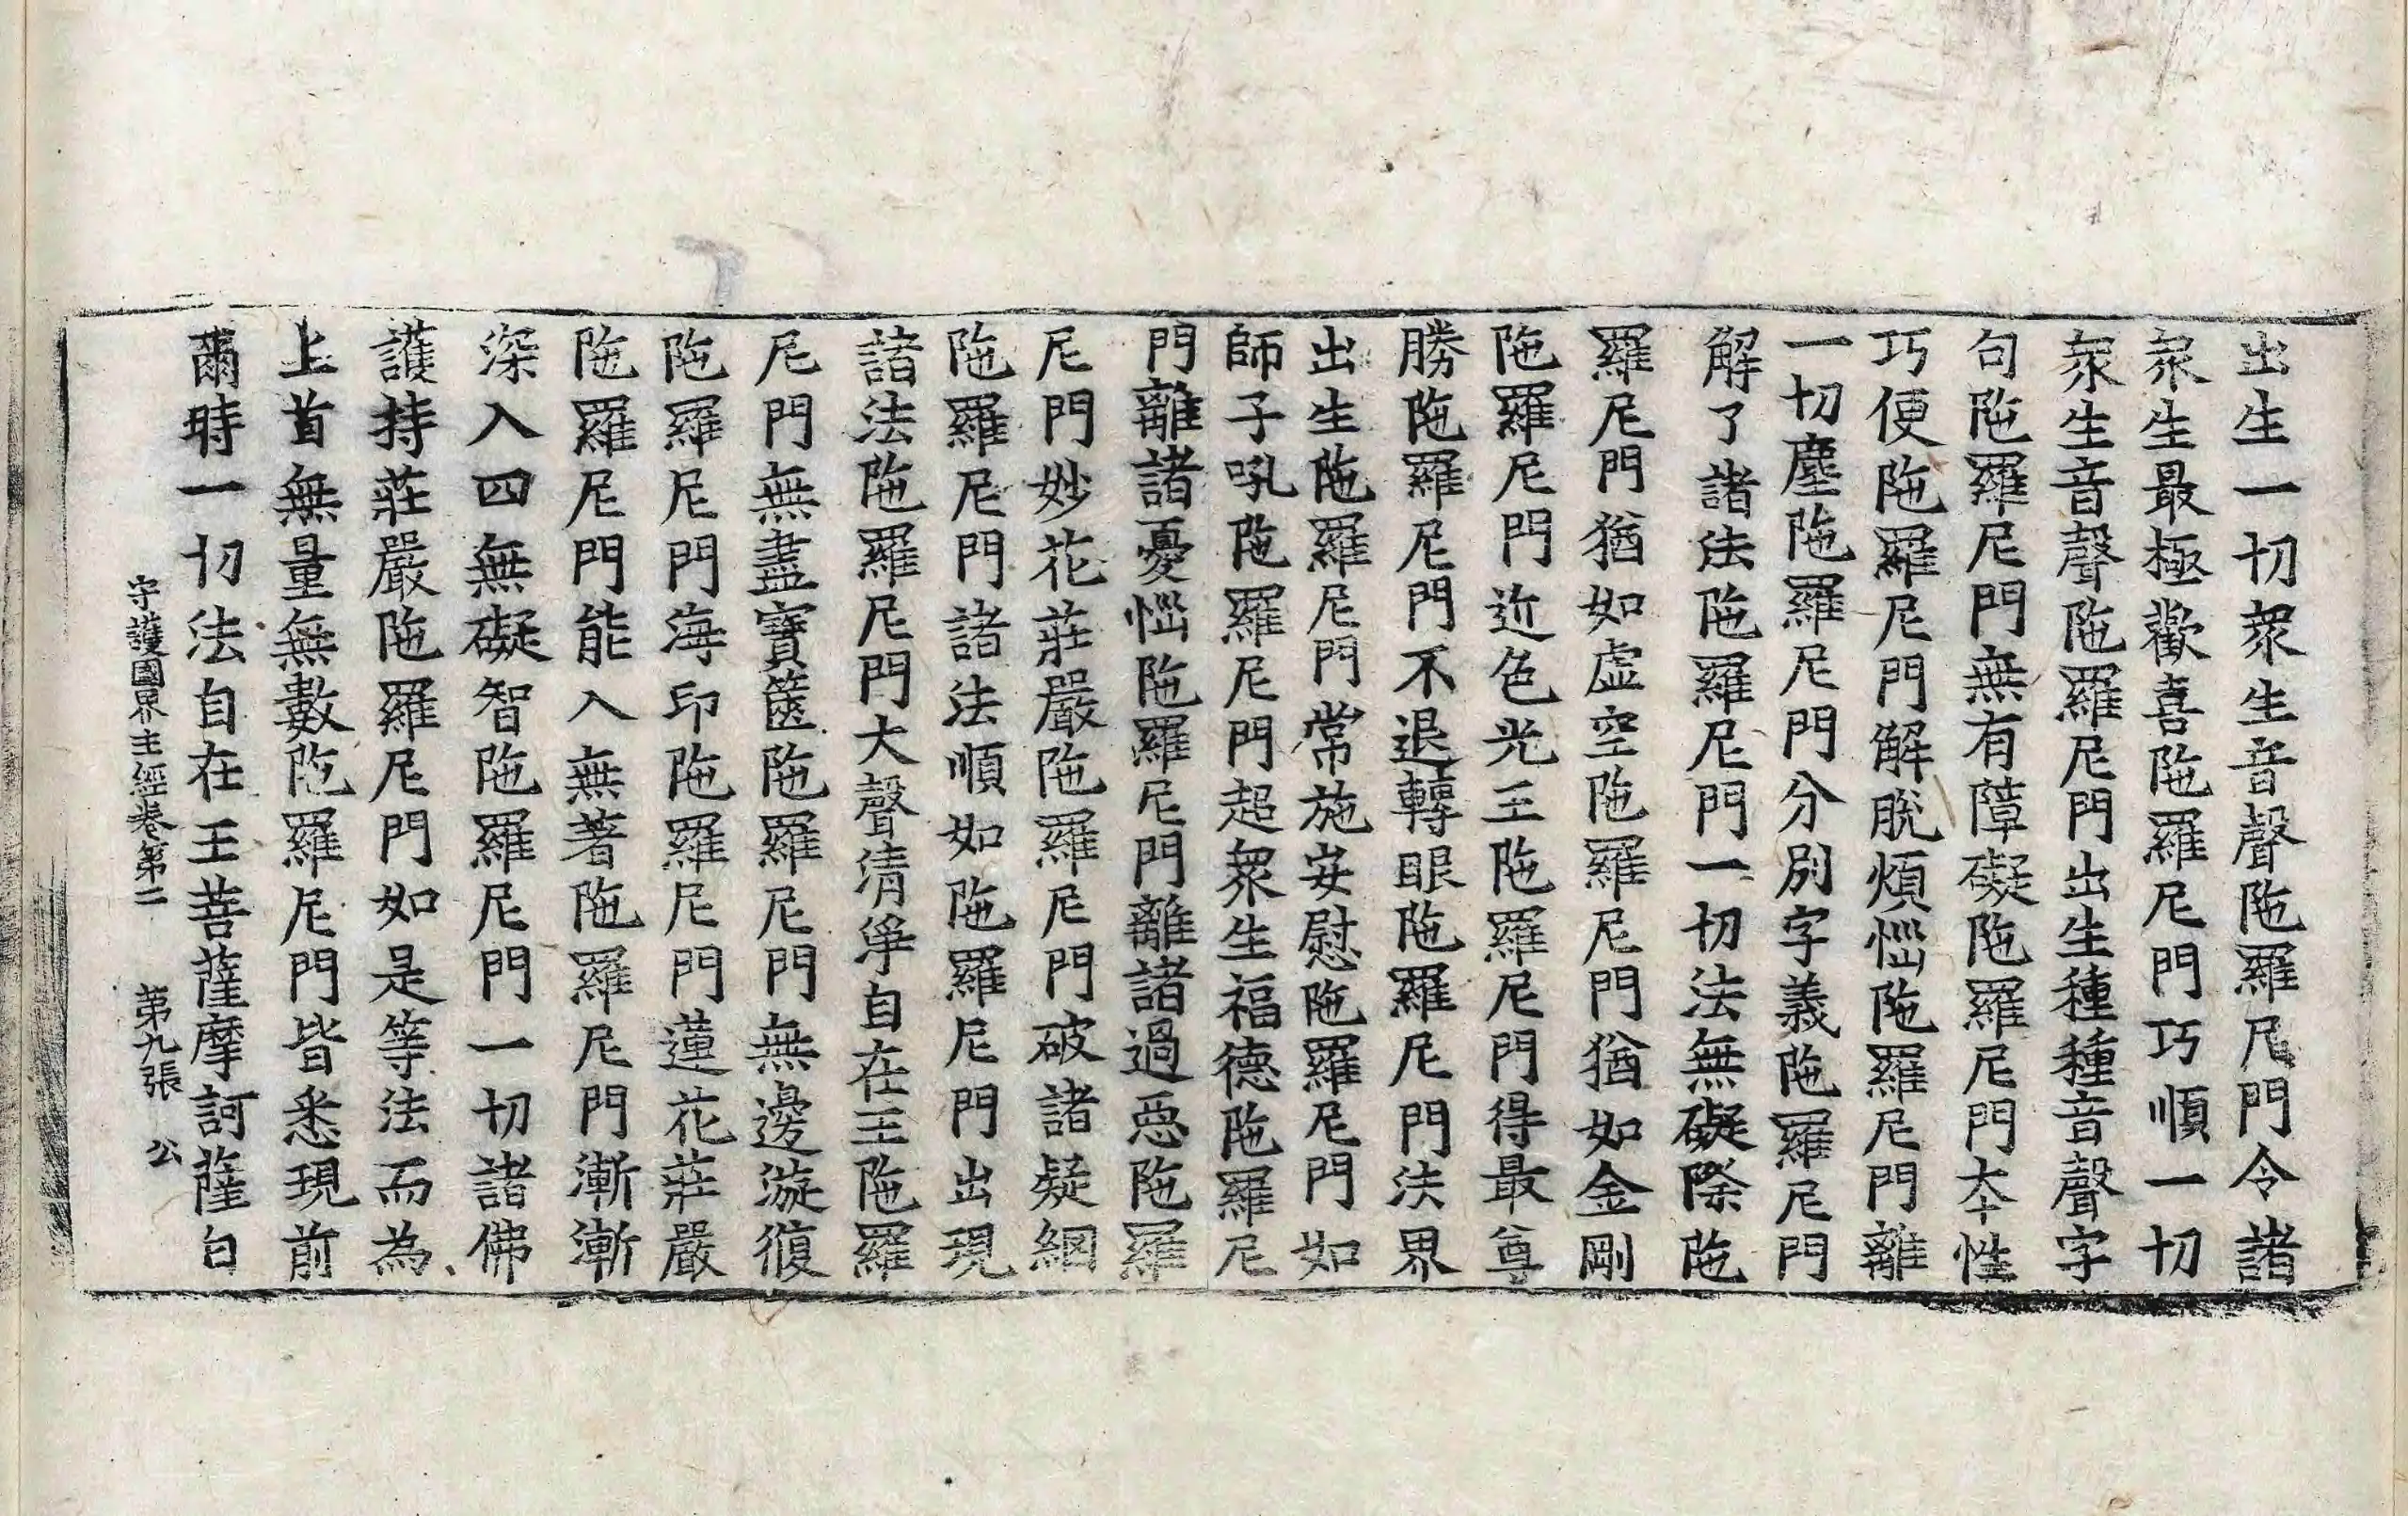 出生一切衆生音聲陁羅尼門令諸
衆生最極歡喜陁羅尼門巧順一切
衆生音聲陁羅尼門出生種種音聲字
句陁羅尼門無有障礙陁羅尼門夲性
巧便陁羅尼門解脫煩惱陁羅尼門離
一切塵陁羅尼門分別字義陁羅尼門
解了諸法陁羅尼門一切法無礙際陁
羅尼門猶如虛空陁羅尼門猶如金剛
陁羅尼門近色光王陁羅尼門得最尊
勝陁羅尼門不退轉眼陁羅尼門法界
出生陁羅尼門常施安慰陁羅尼門如
師子吼陁羅尼門超衆生福德陁羅尼
門離諸憂惱陁羅尼門離諸過惡陁羅
尼門妙花莊嚴陁羅尼門破諸疑網
陁羅尼門諸法順如陁羅尼門出現
諸法陁羅尼門大聲清淨自在王陁羅
尼門無盡寶篋陁羅尼門無邊漩澓
陁羅尼門海印陁羅尼門蓮花莊嚴
陁羅尼門能入無著陁羅尼門漸漸
深入四無礙智陁羅尼門一切諸佛
護持莊嚴陁羅尼門如是等法而為
上首無量無數陁羅尼門皆悉現前
爾時一切法自在王菩薩摩訶薩白
守護國界主經卷第二 第九張 公